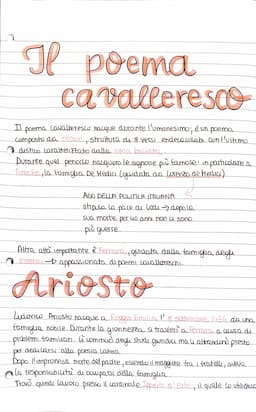 Il poema
cavalleresco
Il poema cavalleresco nacque durante l'umanesimo; è un poema
composto da ottave, strofa di 8 versi endecasillabi con l'ultimo
distico caratterizzato dalla rima baciata.
Durante quel periodo nacquero le signorie più famose: in particolare a
Firenze, la famiglia De Medici (guidata da Lorenzo de Medici)
AGO DELLA POLITICA ITALIANA
stipula la pace di Lodi → dopo la
sua morte per 40 anni non ci sono
più guerre.
Altra città importante è Ferrara, guidata dalla famiglia degli
Estensi → appassionata di poemi cavallereschi.
Ariosto
Ludovico Ariosto nacque a Reggio Emilia l' 8 settembre 1474 da una
famiglia nobile. Durante la giovinezza si trasferì a Ferrara a causa di
problemi familiari. Lì cominciò degli studi giuridici ma li abbandonò presto
per dedicarsi alla poesia latina.
Dopo l'improvvisa morte del padre, essendo il maggiore tra i fratelli, aveva
la responsabilità di occuparsi della famiglia.
Trovò quindi lavoro presso il cardinale Ippolito d'Este, il quale lo